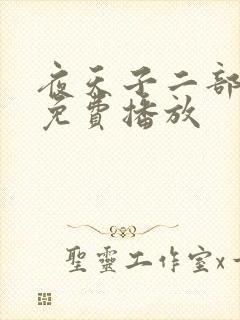 夜天子二部
免費播放
聖靈工作室x